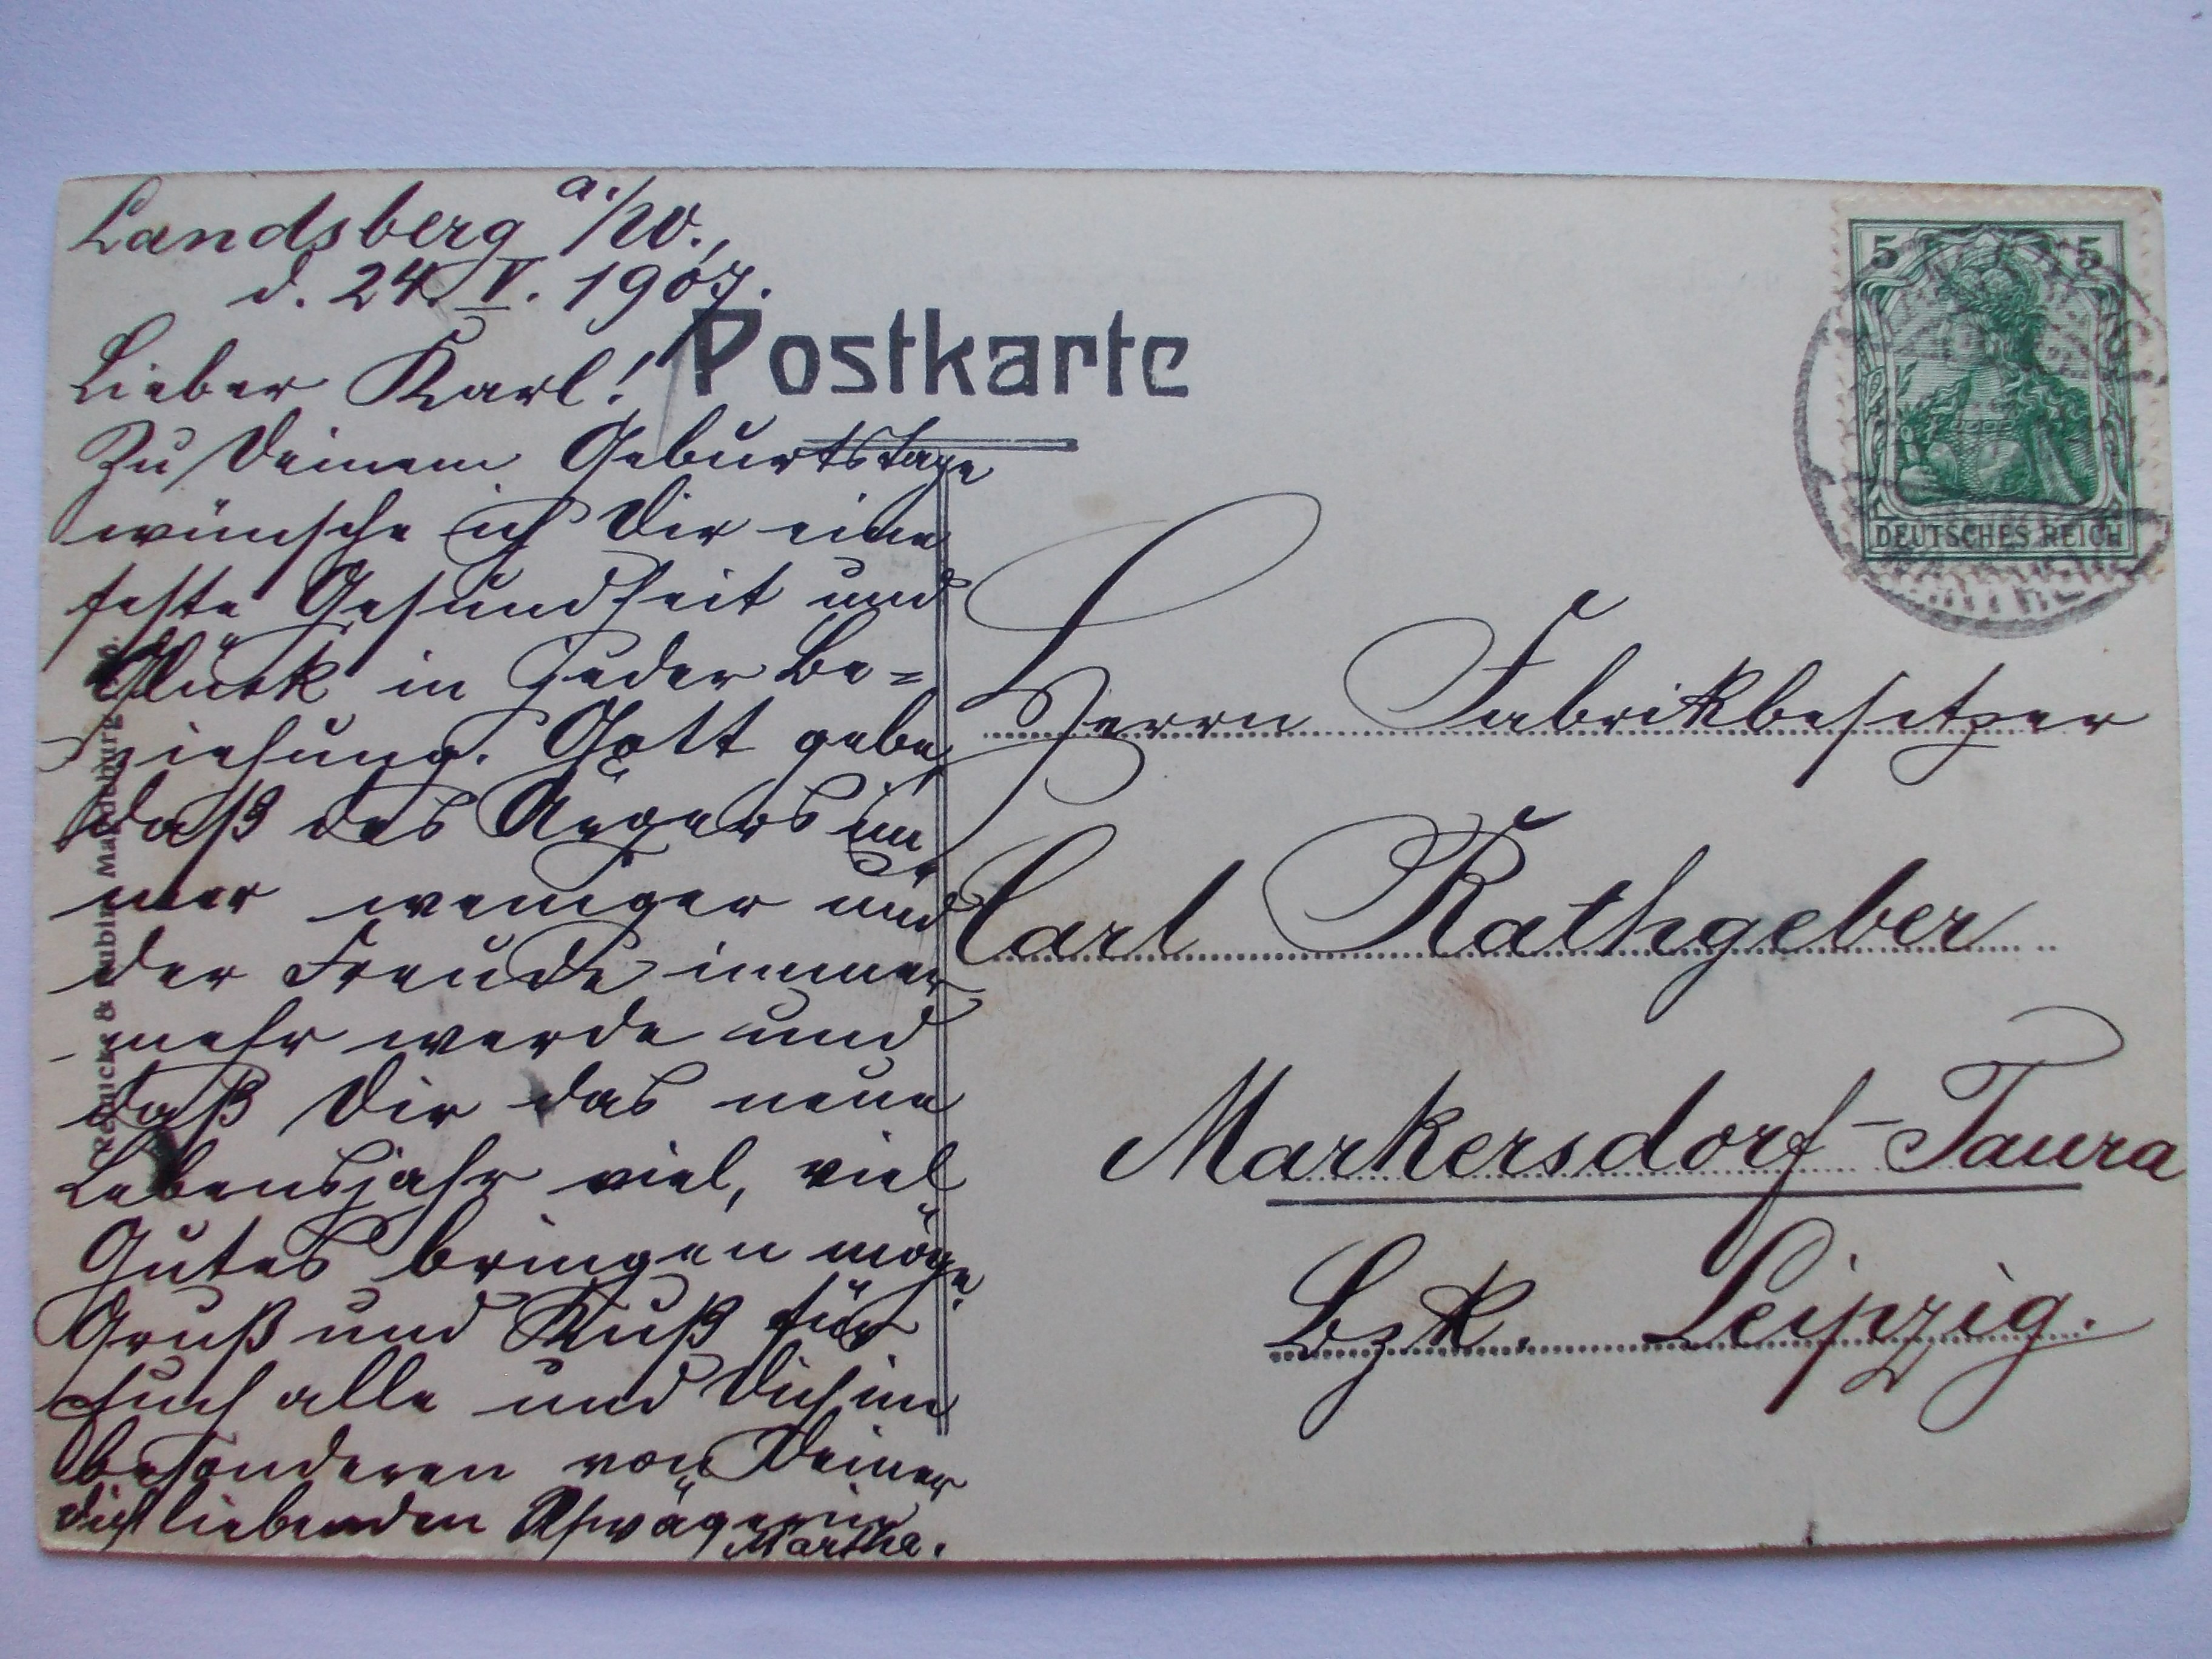 Landsberg a./W.,
d. 24. V. 1907.
Lieber Karl!
Zu Deinem Geburtstage
wünsche ich Dir eine
feste Gesundheit und
Glück in jeder Be=
ziehung. Gott gebe,
daß des Ärgers im
mer weniger und
der Freude immer
mehr werde und
daß Dir das neue
Lebensjahr viel, viel
Gutes bringen möge.
Gruß und Kuß für
Euch alle und Dich im
besonderen von Deiner
Dich liebenden Schwägerin
Martha.
Postkarte
5 5
DEUTSCHES REICH
Herrn Fabrikbesitzer
Carl Rathgeber
Markersdorf-Taura
Bzk. Leipzig.
Reinicke & Rubin, Magdeburg